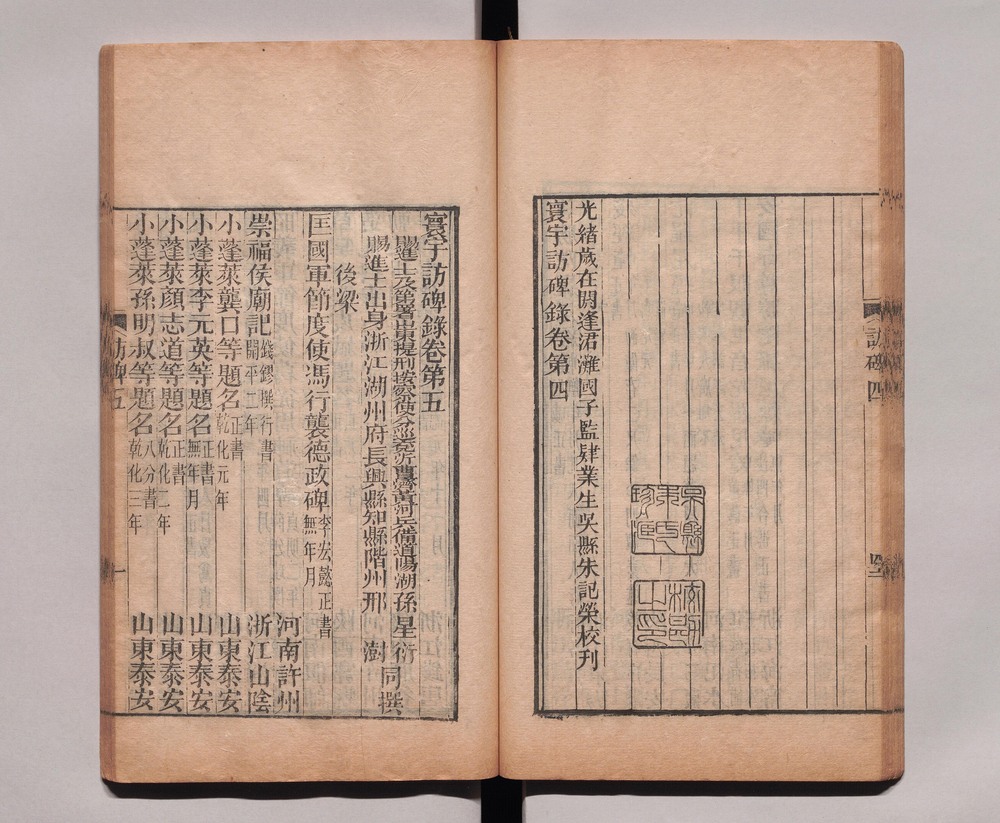 訪碑四
吳縣
朱氏
校勘
之印
光緒歲在閼逢涒灘國子監肄業生吳縣朱記榮校刊
寰宇訪碑錄卷第四
寰宇訪碑錄卷第五
賜進士及第署山東提刑按察使分巡兗沂曹濟黃河兵備道陽湖孫星衍
賜進士出身浙江湖州府長興縣知縣階州邢澍
同撰
後梁
匡國軍節度使馮行襲德政碑李宏懿正書無年月 河南許州
崇福侯廟記錢鏐撰行書開平二年 浙江山陰
小蓬萊龔口等題名正書乾化元年 山東泰安
小蓬萊李元英等題名正書無年月 山東泰安
小蓬萊顏志道等題名正書乾化二年 山東泰安
小蓬萊孫明叔等題名八分書乾化三年 山東泰安
訪碑五 一